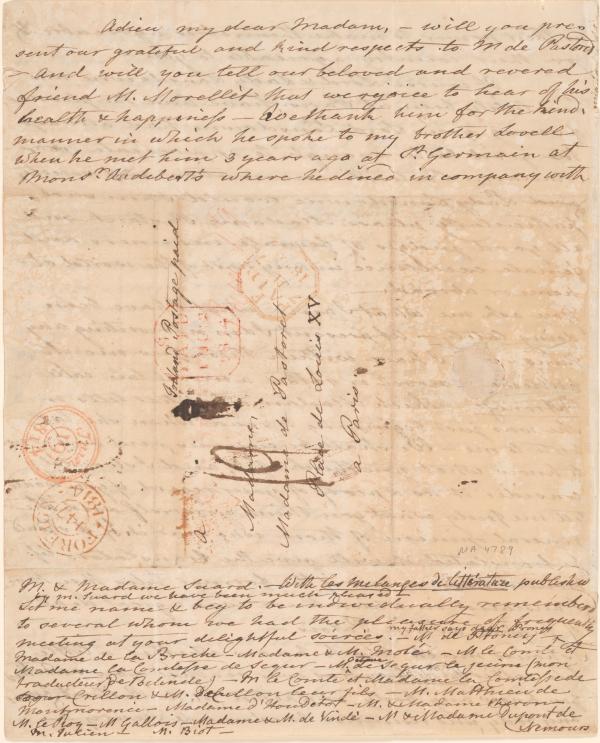 Adieu my dear Madam, – will you pre
sent our grateful and kind respects to M de Pastoret
– And will you tell our beloved and revered
friend M. Morellet that we rejoice to hear of his
health & happiness – We thank him for the kind
manner in which he spoke to my brother Lovell
when he met him 3 years ago at St. Germain at
Monsr. where he dined in company with
Inland Postage paid
A
Madame,
Madame de Pastoret
Place de Louis XV
a Paris.
FOREIGN
1814
MA 4789
M. & Madame Suard. – With les melanges de littérature published
by M. Suard we have been much pleased
Let me name & beg to be individually remembered
to several whom we had the pleasure of frequently
meeting at your delightful soirées.
my father says
Madame de la Briche – Madame & M. Molé – M le Comte et
Madame la Comtesse de Segur – M. Segur le jeune (mon
traducteur de Belinde) – M le Comte et Madame la Comtesse de
Crillon & M. de Crillon leur fils – M. Matthieu de
Montmorence – Madame d'Houdetot – Madame
M. le Roy – M Gallois – Madame & M. de Vindé – M & Madame Dupont de
Nemours
M. – M. Biot –